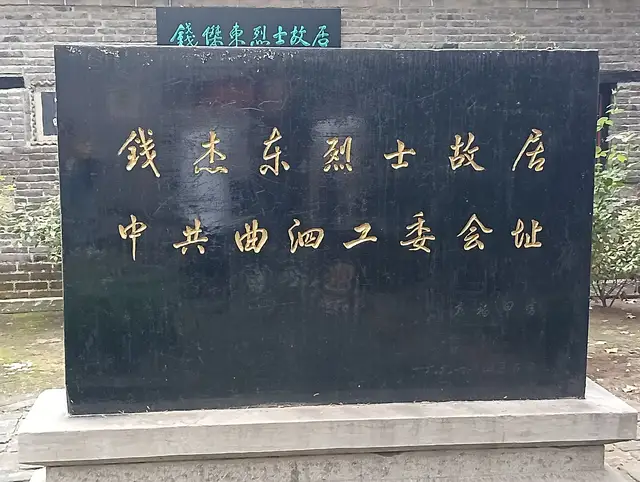 錢傑東烈士故居
錢杰东烈士故居
中共曲泗工委会址